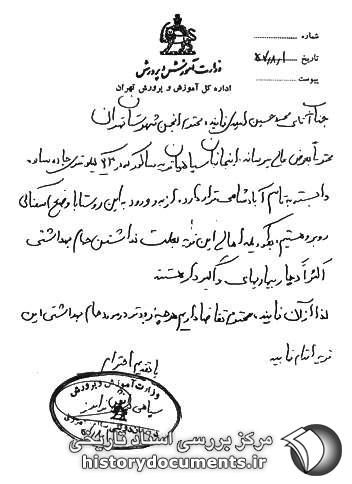 شماره
تاریخ
پیوست
وزارت آموزش و پرورش
اداره کل آموزش و پرورش تهران
جناب آقای محمد حسین نماینده محترم انجمن شهرستان تهران
محترماً بعرض عالی میرساند، اینجانبان سپاهیان در ۲۳ کیلومتری جاده ساوه
وابسته به نام آباد قرار دارد. از بدو ورود به این روستا با وضع اسفناکی
روبرو هستیم، بطوریکه اهالی این قریه بعلت نداشتن حمام بهداشتی
اکثراً دچار بیماریهای واگیردار هستند
لذا از آن نماینده محترم تقاضا داریم هر چه زودتر در مورد حمام بهداشتی این
قریه اقدام نمایید
با تقدیم احترام
وزارت آموزش و پرورش
سپاهی
مرکز بررسی اسناد تاریخی
historydocuments.ir